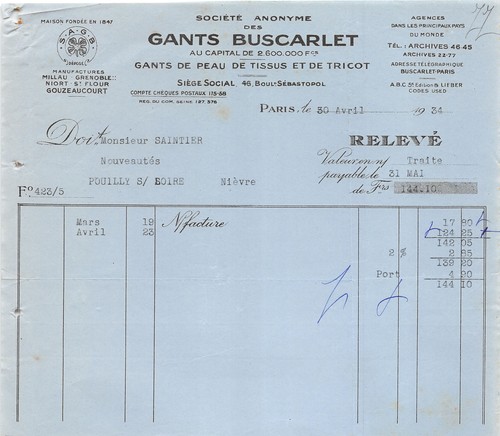 MAISON FONDÉE EN 1847
S.A.G.B
MANUFACTURES
MILLAU - GRENOBLE
NIORT - ST FLOUR
GOUZEAUCOURT
SOCIÉTÉ ANONYME
DES
GANTS BUSCARLET
AU CAPITAL DE 2.600.000 FCS
GANTS DE PEAU DE TISSUS ET DE TRICOT
SIÈGE SOCIAL 46, BOULT SÉBASTOPOL
COMPTE CHÈQUES POSTAUX 178-88
REG. DU COM. SEINE 127 376
AGENCES
DANS LES PRINCIPAUX PAYS
DU MONDE
TÉL.: ARCHIVES 46-45
ARCHIVES 22-77
ADRESSE TÉLÉGRAPHIQUE
BUSCARLET-PARIS
A.B.C 5th Edition & LIEBER
CODES USED
PARIS, le 30 Avril 1934
Doit Monsieur SAINTIER
Nouveautés
POUILLY S/ LOIRE Nièvre
Fo 423/5
RELEVÉ
Valeur en n/ Traite
payable le 31 MAI
de Frs 144.10
Mars 19 N/facture 17 80
Avril 23 124 25
142 05
2 % 2 85
139 20
Port 4 90
144 10